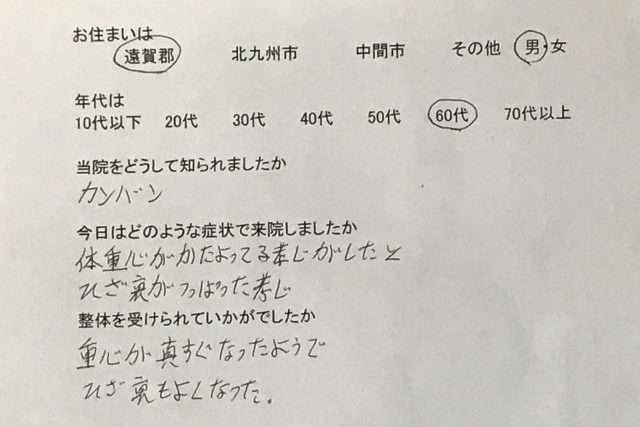 お住まいは
遠賀郡 北九州市 中間市 その他 男・女
年代は
10代以下 20代 30代 40代 50代 60代 70代以上
当院をどうして知られましたか
カンバン
今日はどのような症状で来院しましたか
体重心がかたよってる感じがしたと
ひざ裏がつっぱった感じ
整体を受けられていかがでしたか
重心が真すぐなったようで
ひざ裏もよくなった。